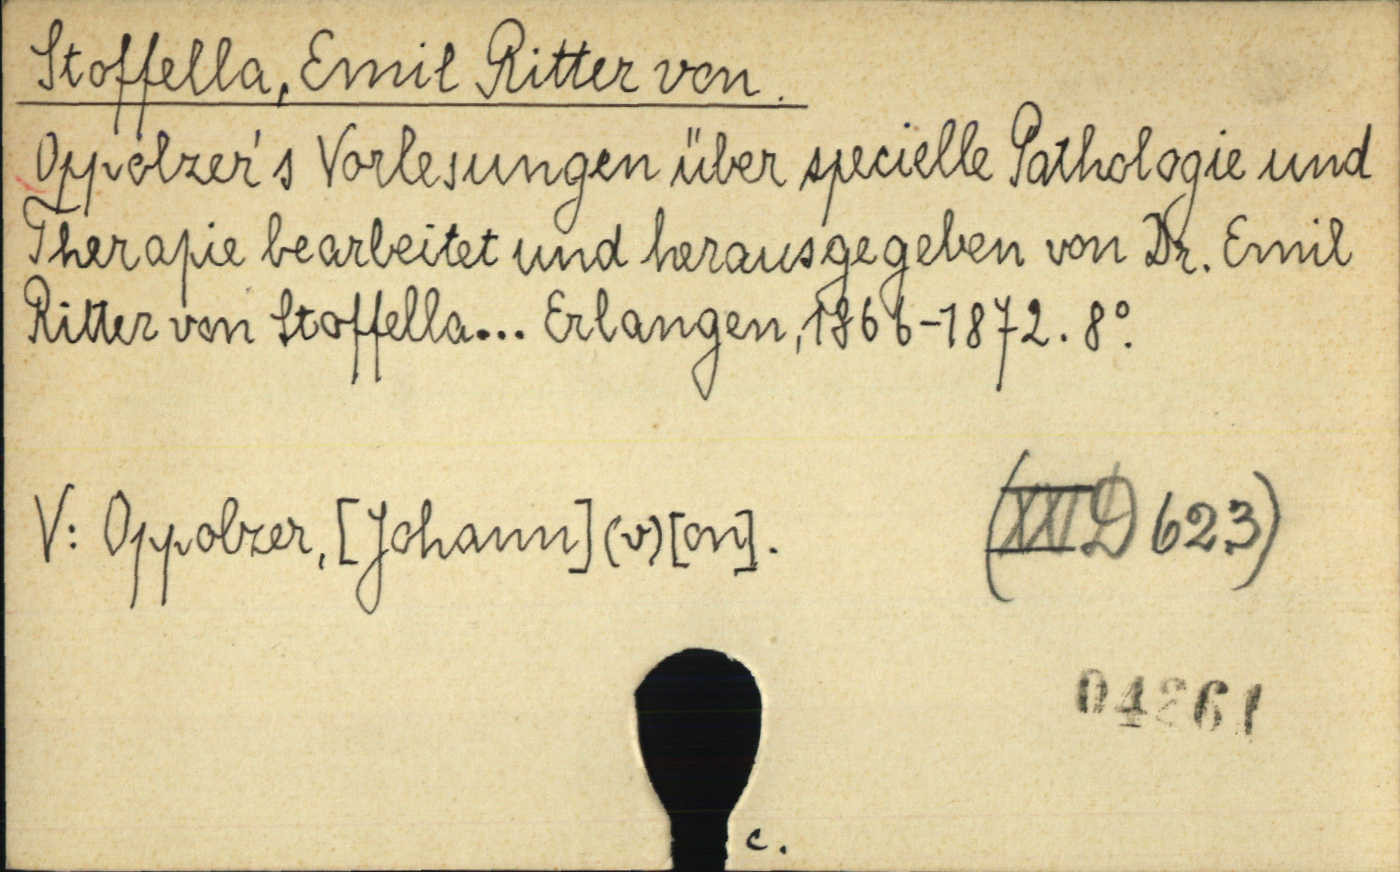 Stoffella, Emil Ritter von.
Oppolzer's Vorlesungen über specielle Pathologie und
Therapie bearbeitet und herausgegeben von Dr. Emil
Ritter von Stoffella... Erlangen, 1866-1872. 8°.
V: Oppolzer, [Johann] (v)[on].
(XXI D 623)
c.